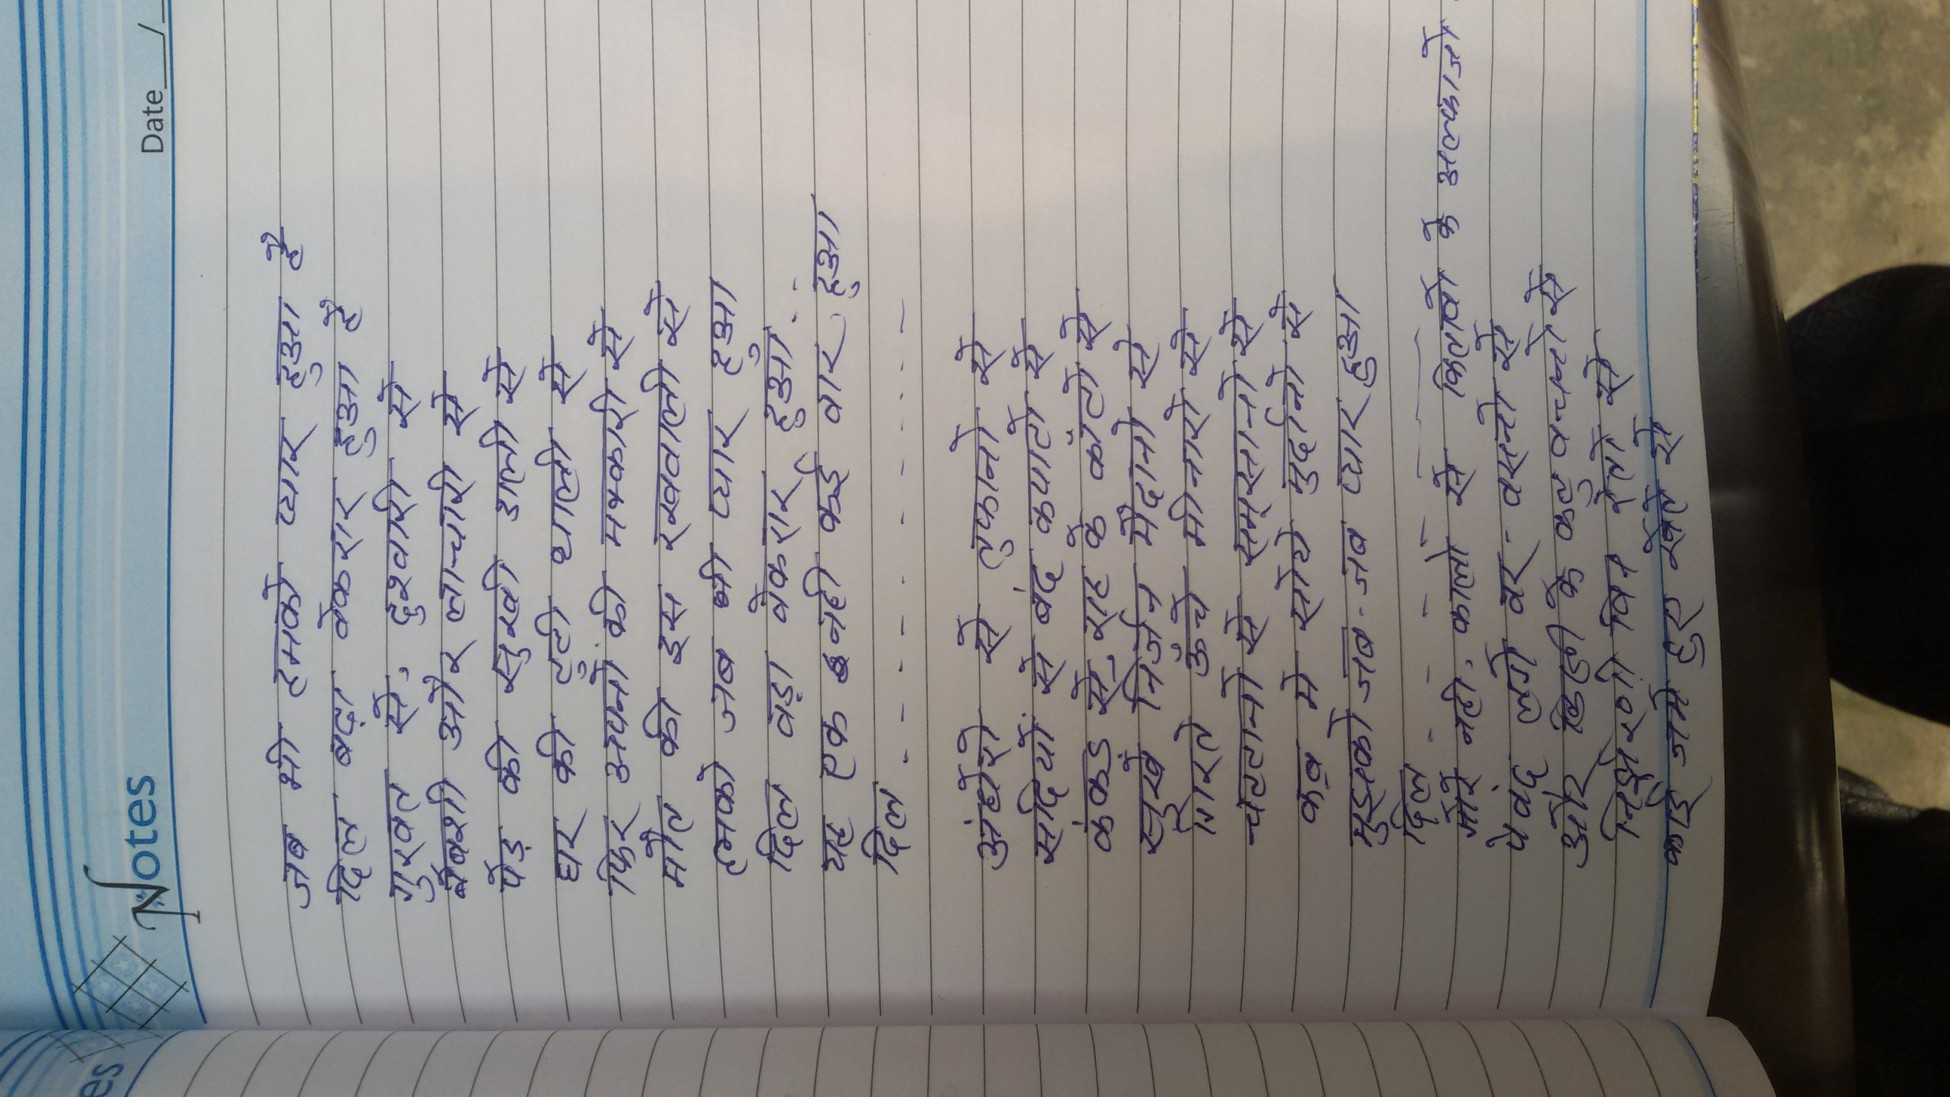 Notes
Date__/_
जब भी हमको प्यार हुआ है
दिल बड़ा बेकरार हुआ है
गुरबत से, दुश्वारी से
बेबशी और लाचारी से
पेड़ की सुखी डाली से
घर की टूटी थाली से
फिर अपनो की मक्कारी से
मौत की इस रखवाली से
हमको जब भी प्यार हुआ
दिल बड़ा बेकरार हुआ..
यह एक नही कई बार हुआ
दिल - - - - - . . . . - -
अंधेरो से तुफानो से
सदियों से बंद कपाटो से
कंकड से, राह के कांटो से
सुखे निर्जन मैदानो से
गिरते ऊँचे मीनारो से
चट्टानो से समसानो से
कब्र मे सोये मुर्दानो से
मुझको जब-जब प्यार हुआ
दिल - - - - - -
गोरे नही, कालो से किताबो के अल्फाजो
पेवंद लगे वर-वस्त्रो से
और दिल्ली के
कई जमे हुए रक्त से
es